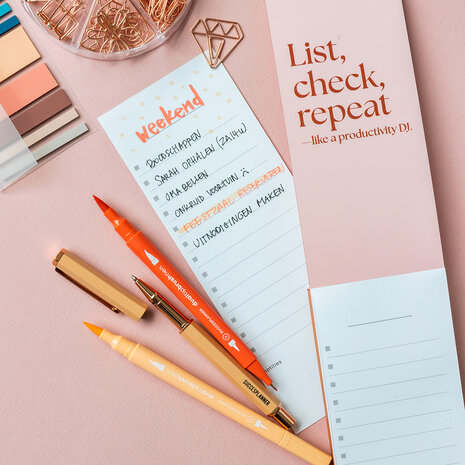 List,
check,
repeat
—like a productivity DJ.
weekend
BOODSCHAPPEN
SARAH OPHALEN (ZA 14u)
OMA BELLEN
ONKRUID VOORTUIN
FEESTZAAL RESERVEREN
UITNODIGINGEN MAKEN
SUCCESPLANNER